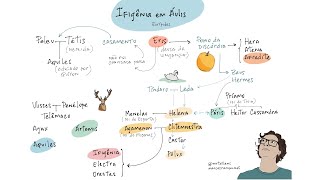 IFIGÊNIA EM ÁULIS
Eurípedes
Peleu
Tétis
(nereida)
casamento
Éris
(deusa da discórdia)
Pomo da
Discórdia
Hera
Atena
Afrodite
Aquiles
(educado por
Quíron)
não foi
convidada
Zeus
Hermes
Tíndaro
Leda
Príamo
(rei de Troia)
Ulisses
Penélope
Telêmaco
Menelau
(rei de Esparta)
Helena
Páris
Heitor
Cassandra
Ajax
Ártemis
Agamenon
Clitemnestra
Aquiles
Castor
Pólux
Ifigênia
Electra
Orestes